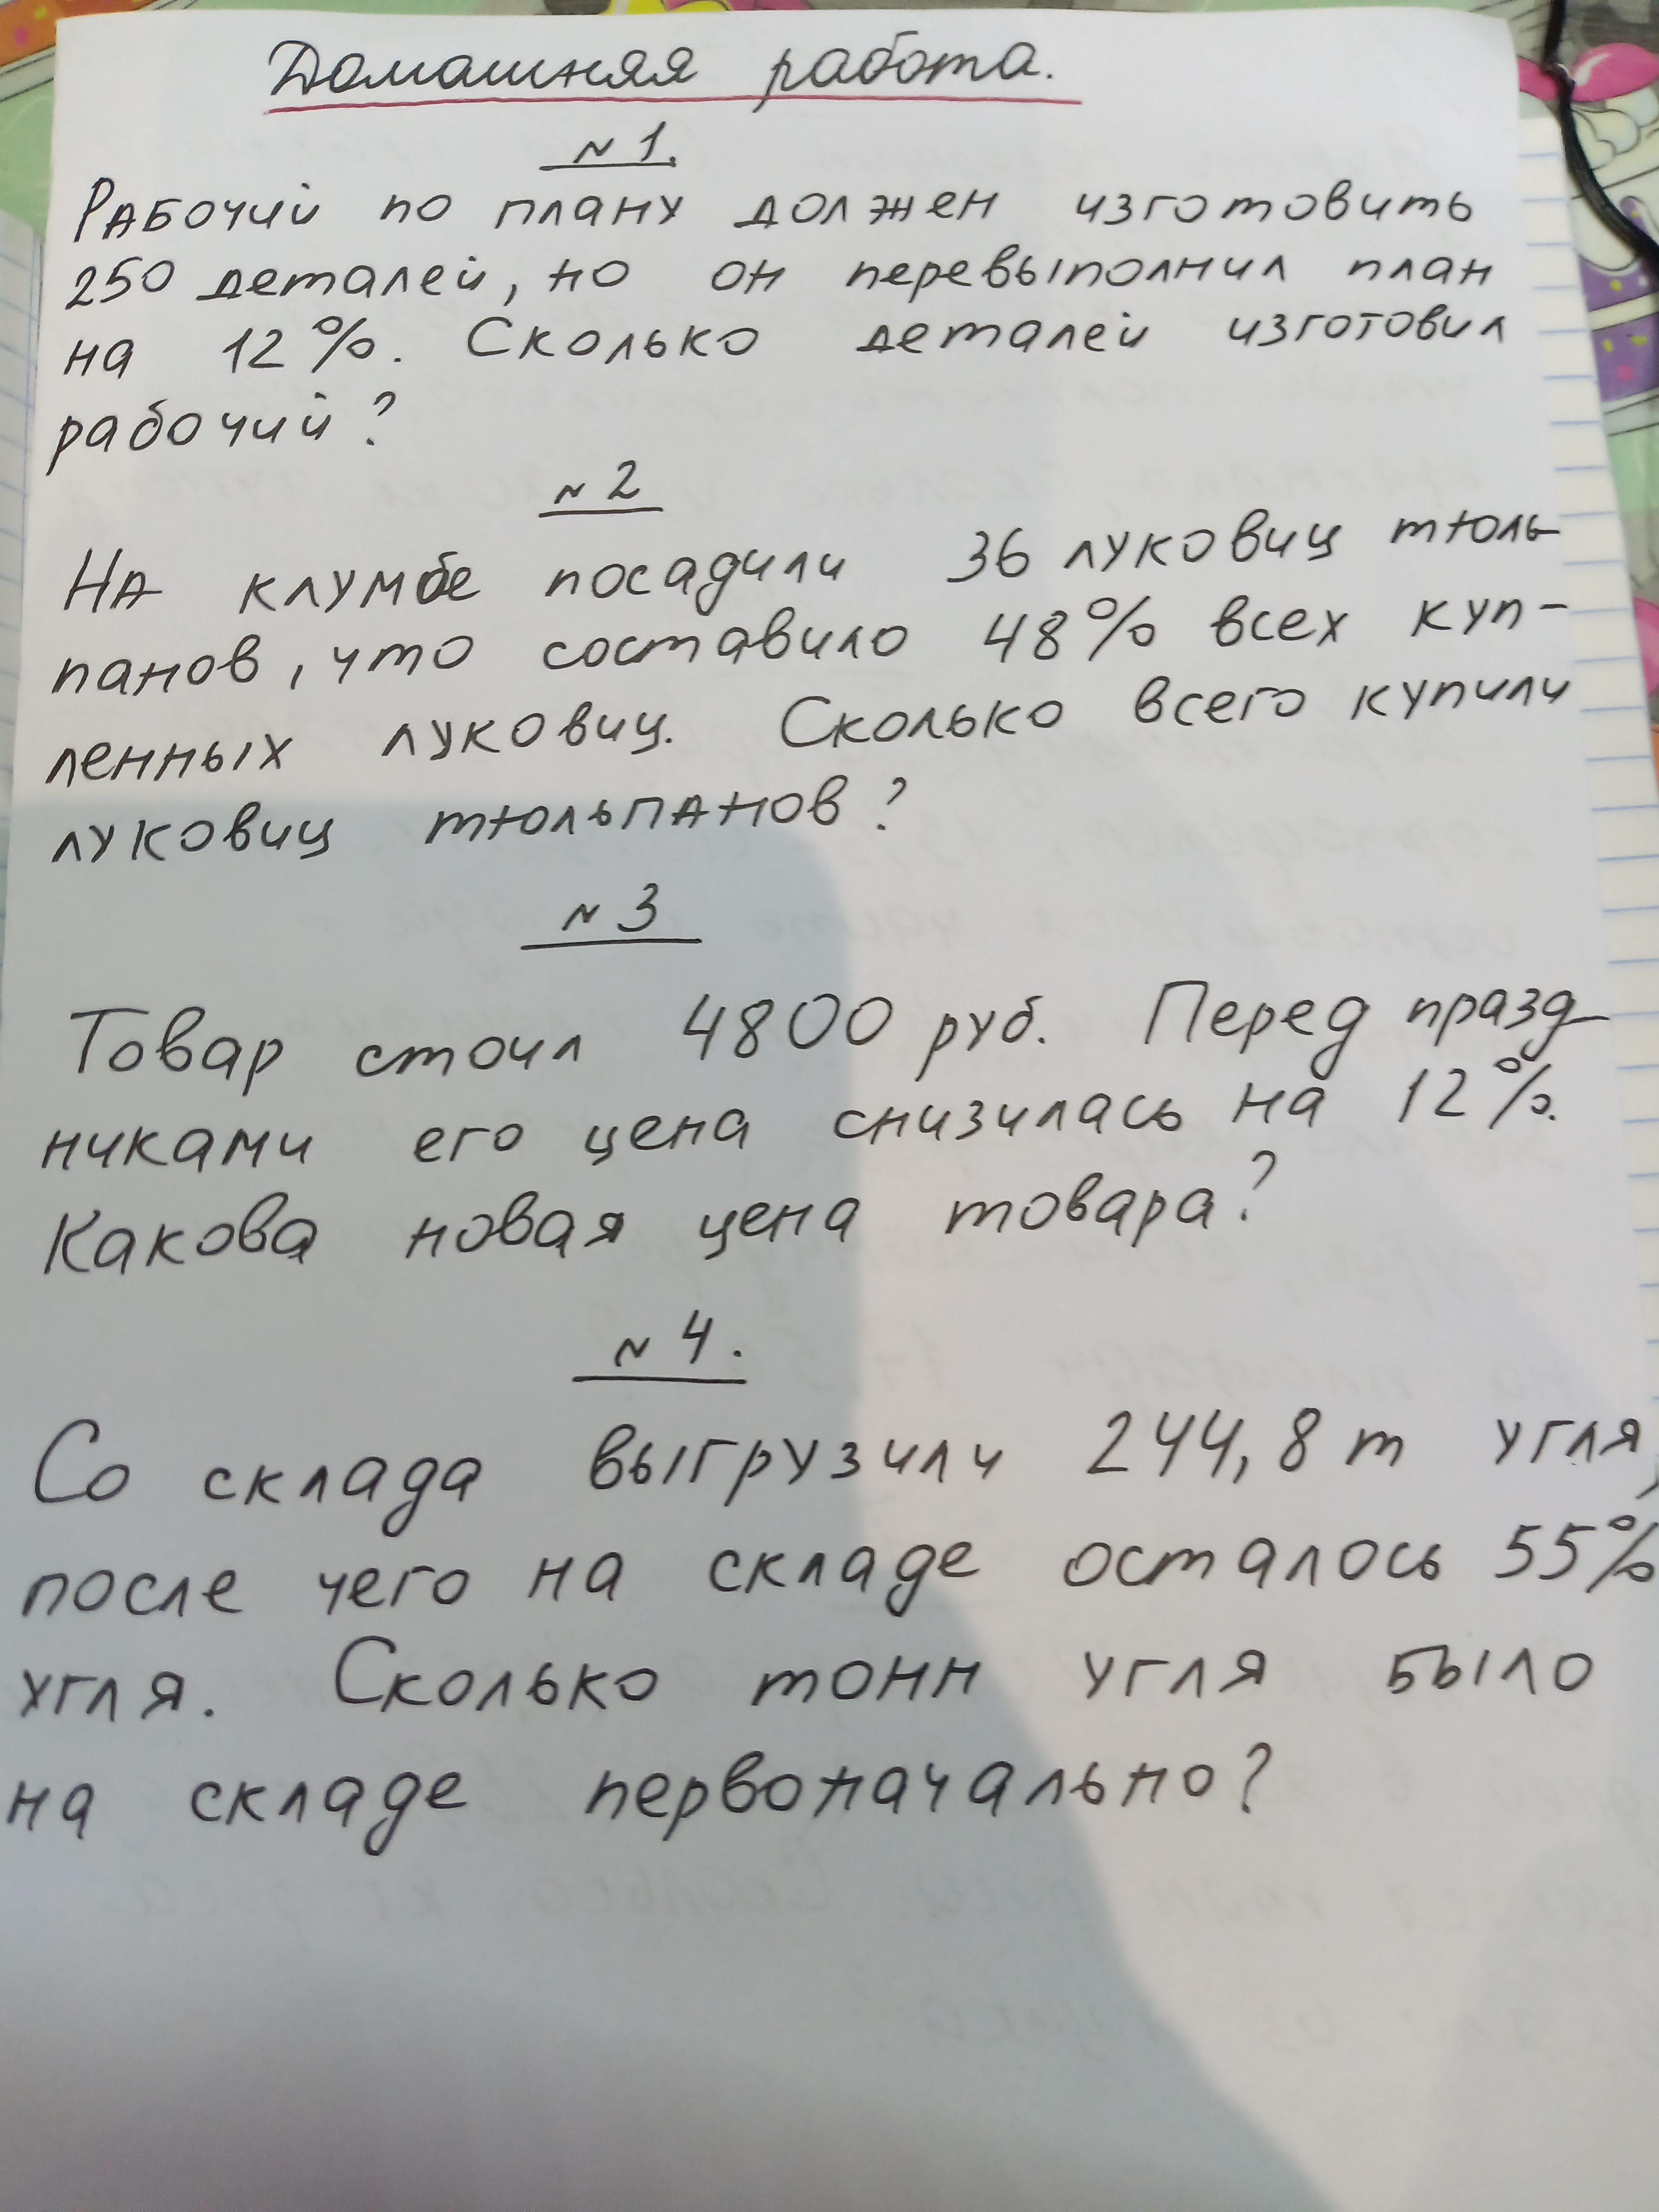 Домашняя работа.
№ 1.
Рабочий по плану должен изготовить
250 деталей, но он перевыполнил план
на 12%. Сколько деталей изготовил
рабочий?
№ 2
На клумбе посадили 36 луковиц тюль-
панов, что составило 48% всех куп-
ленных луковиц. Сколько всего купили
луковиц тюльпанов?
№ 3
Товар стоил 4800 руб. Перед празд-
никами его цена снизилась на 12%.
Какова новая цена товара?
№ 4.
Со склада выгрузили 244,8 т угля,
после чего на складе осталось 55%
угля. Сколько тонн угля было
на складе первоначально?